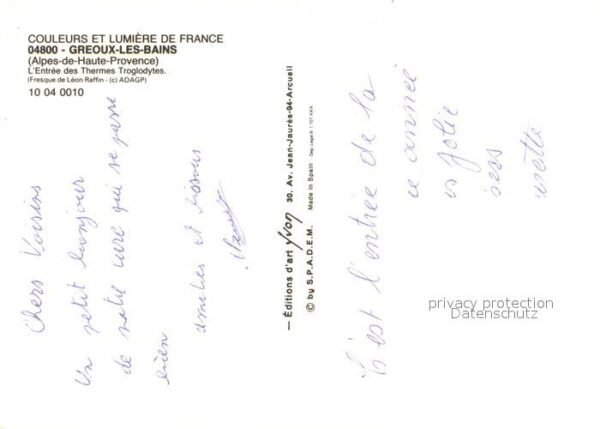 COULEURS ET LUMIÈRE DE FRANCE
04800 - GREOUX-LES-BAINS
(Alpes-de-Haute-Provence)
L'Entrée des Thermes Troglodytes.
(Fresque de Léon Raffin - (c) ADAGP)
10 04 0010
Chers Voisins
Un petit bonjour
de notre cure qui se passe
bien
amitiés et bisous
— Éditions d'art Yvon 30, Av. Jean-Jaurès-94-Arcueil
© by S.P.A.D.E.M. Made in Spain
C'est l'entrée de la
ce année
jolie
privacy protection
Datenschutz